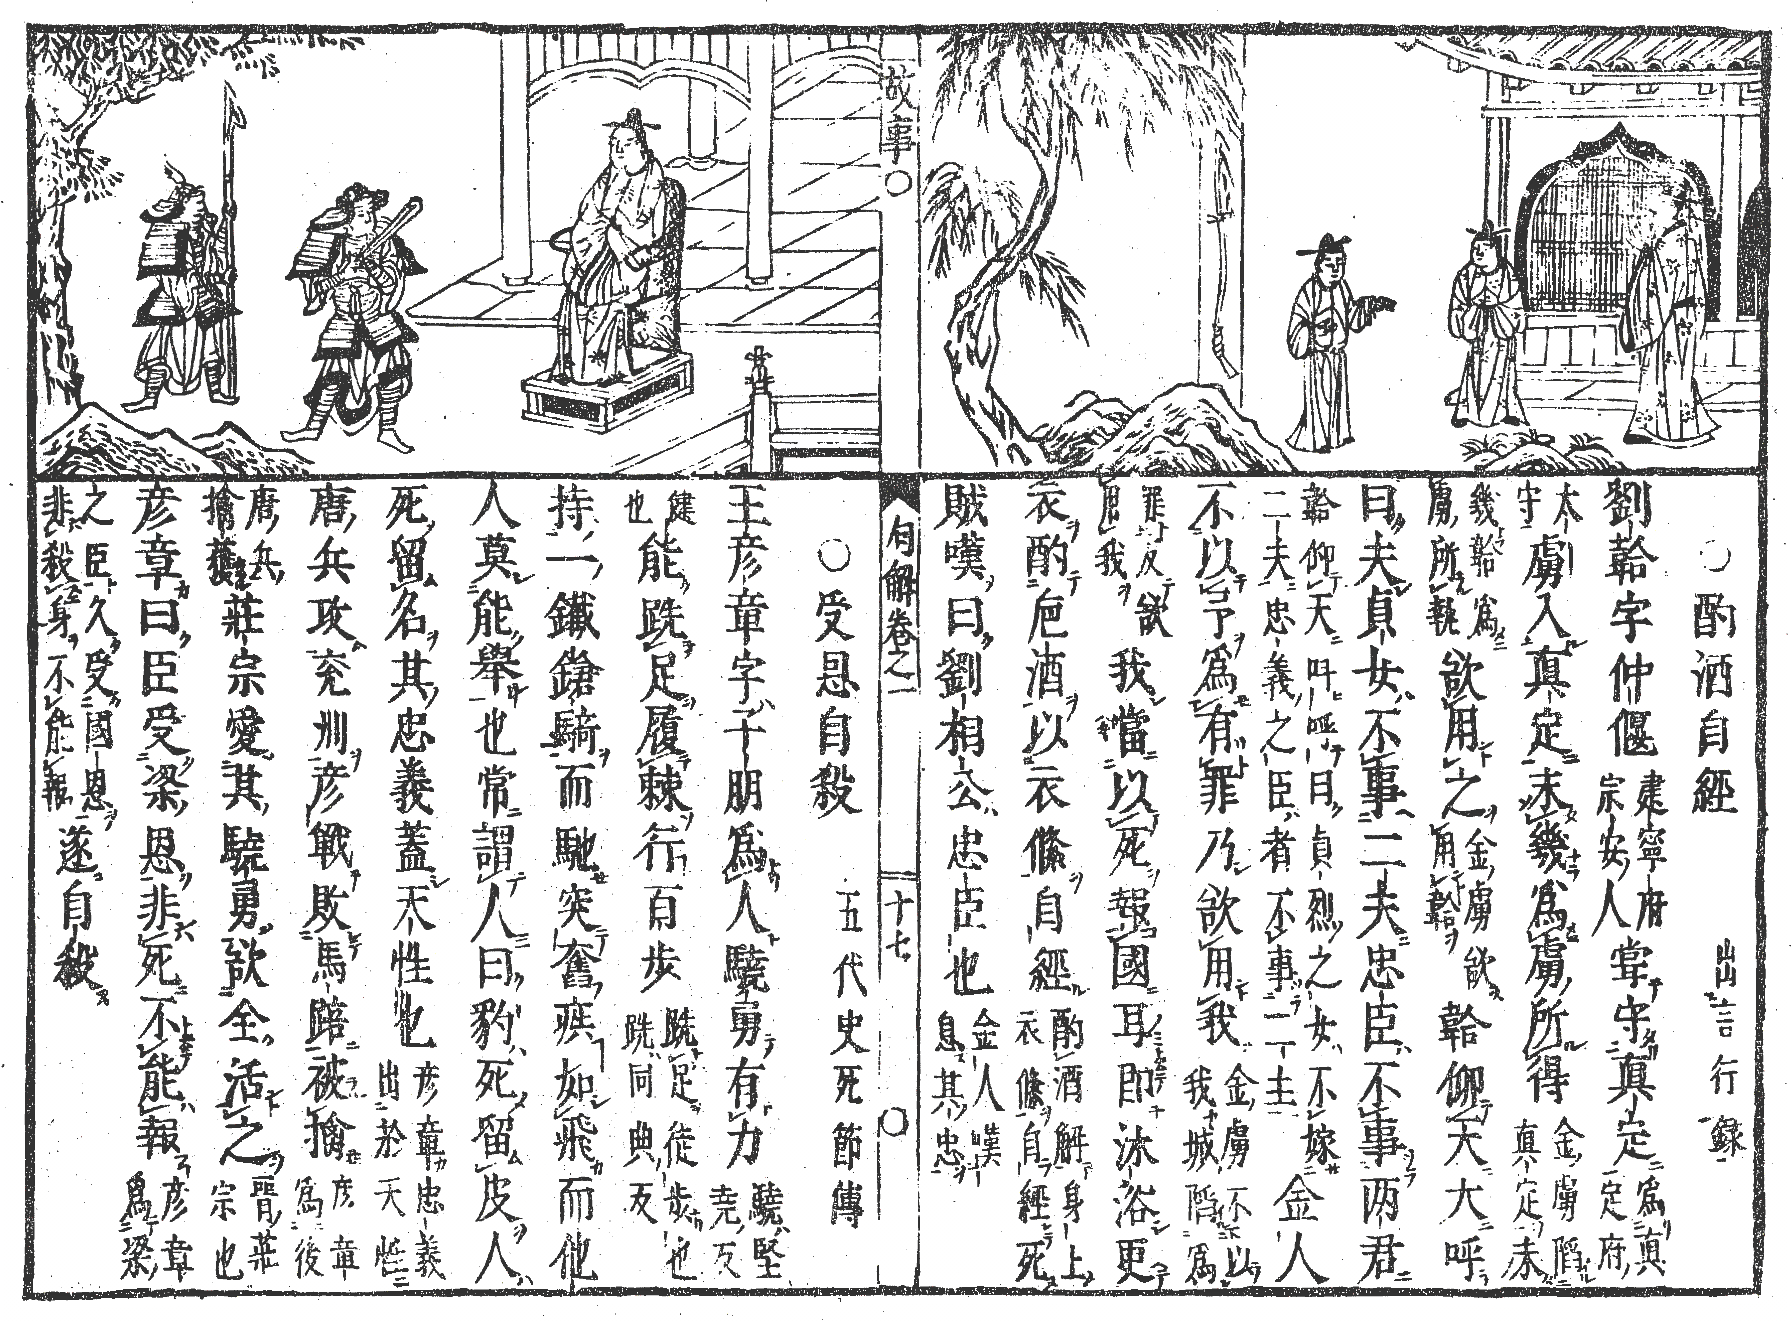 ○酌酒自經　出言行録
劉韐字仲偃建寧府宗安人嘗守真定為真定府
太守虜入真定未幾為虜所得金虜陷真定未
幾韐為虜所執欲用之金虜欲用韐韐仰天大呼
曰夫貞女不事二夫忠臣不事两君
韐仰天呌呼曰貞烈之女不嫁二夫忠義之臣者不事二主金人
不以予為有罪乃欲用我金虜不以我城陷為
罪反欲用我我當以死報國耳即沐浴更
衣酌巵酒以衣絛自經酌酒解身上衣絛自經死
賊嘆曰劉相公忠臣也金人嘆息其忠
故事○
句解卷之一
十七
○受恩自殺　五代史死節傳
王彦章字子朋為人驍勇有力驍堅尭反
健也能跣足履棘行百歩跣足徒歩也跣同典反
持一鐵鎗騎而馳突奮疾如飛而他
人莫能舉也常謂人曰豹死留皮人
死留名其忠義蓋天性也彦章忠義出於天性
唐兵攻兖州彦戰敗馬踣被擒彦章為後
唐兵擒獲莊宗愛其驍勇欲全活之晋莊宗也
彦章曰臣受梁恩非死不能報彦章為梁
之臣久受國恩非殺身不能報遂自殺